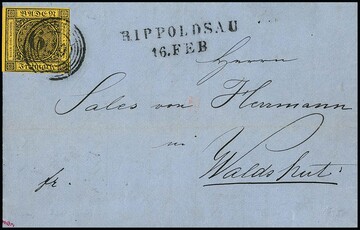 BADEN
Freimarke
RIPPOLDSAU
16.FEB
Herrn
Sales von Herrmann
in
Waldshut.
fr.